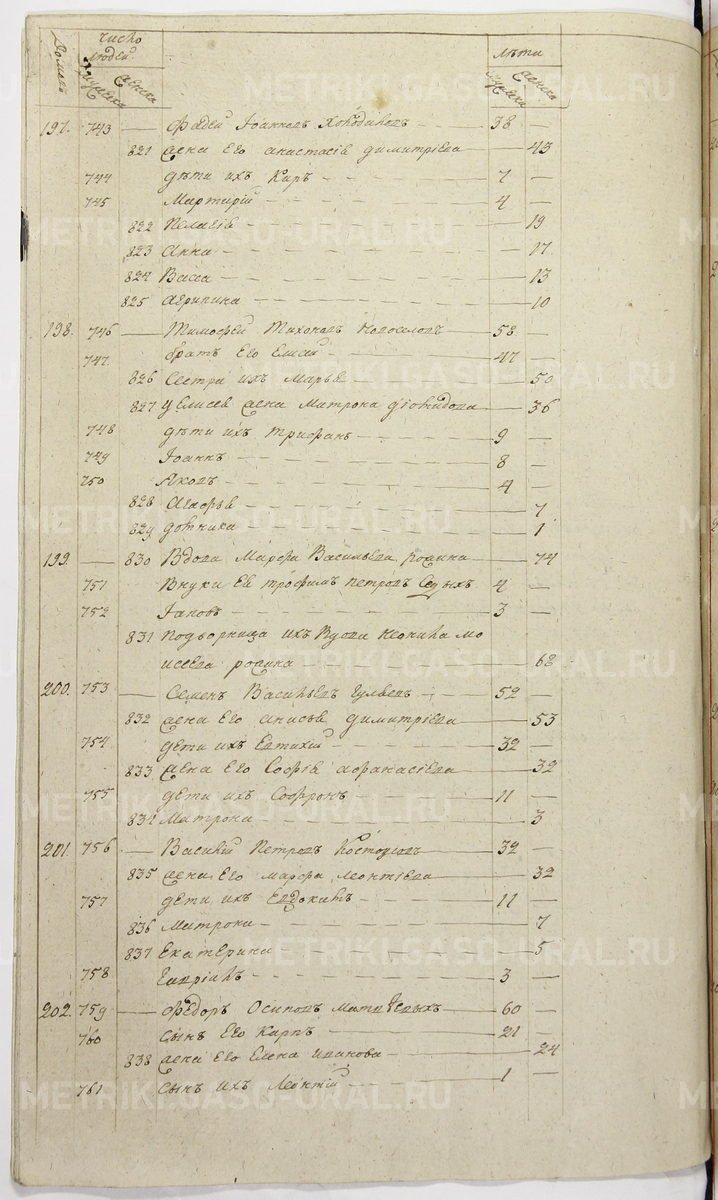 Домовъ Число людей Лѣта
Мужеска Женска Мужеска Женска
197. 743 Фадей Іоанновъ 38
821 жена Его анастасія димитріева 43
744 дѣти ихъ Киръ 7
745 Мартирій 4
822 Пелагія 19
823 Анна 17
824 Васса 13
825 Агрипина 10
198. 746 Тимофей Тихоновъ Новоселовъ 58
747 братъ Его Елисей 47
826 Сестра ихъ Марья 50
827 У Елисея жена Матрона 36
748 дѣти ихъ Трифанъ 9
749 Іоаннъ 8
750 Яковъ 4
828 7
829 1
199. 830 Вдова Марфа Васильева 74
751 Внуки Ея трофимъ петровъ Седыхъ 4
752 Іаковъ 3
831 Подворница ихъ Вдова Неонила мо
исеева 62
200. 753 Семенъ Васильевъ 52
832 жена Его анисья димитріева 53
754 дети ихъ Евтихій 32
833 жена Его Софія афанасіева 32
755 дети ихъ Софронъ 11
834 Матрона 3
201. 756 Василій Петровъ 32
835 жена Его марфа леонтіева 32
757 дети ихъ Евдокимъ 11
836 Матрона 7
837 Екатерина 5
758 Гавріилъ 3
202. 759 Фѣдоръ Осиповъ 60
760 сынъ Его Карпъ 21
838 жена Его Елена иванова 24
761 сынъ ихъ Леонтій 1
METRIKI.GASO-URAL.RU